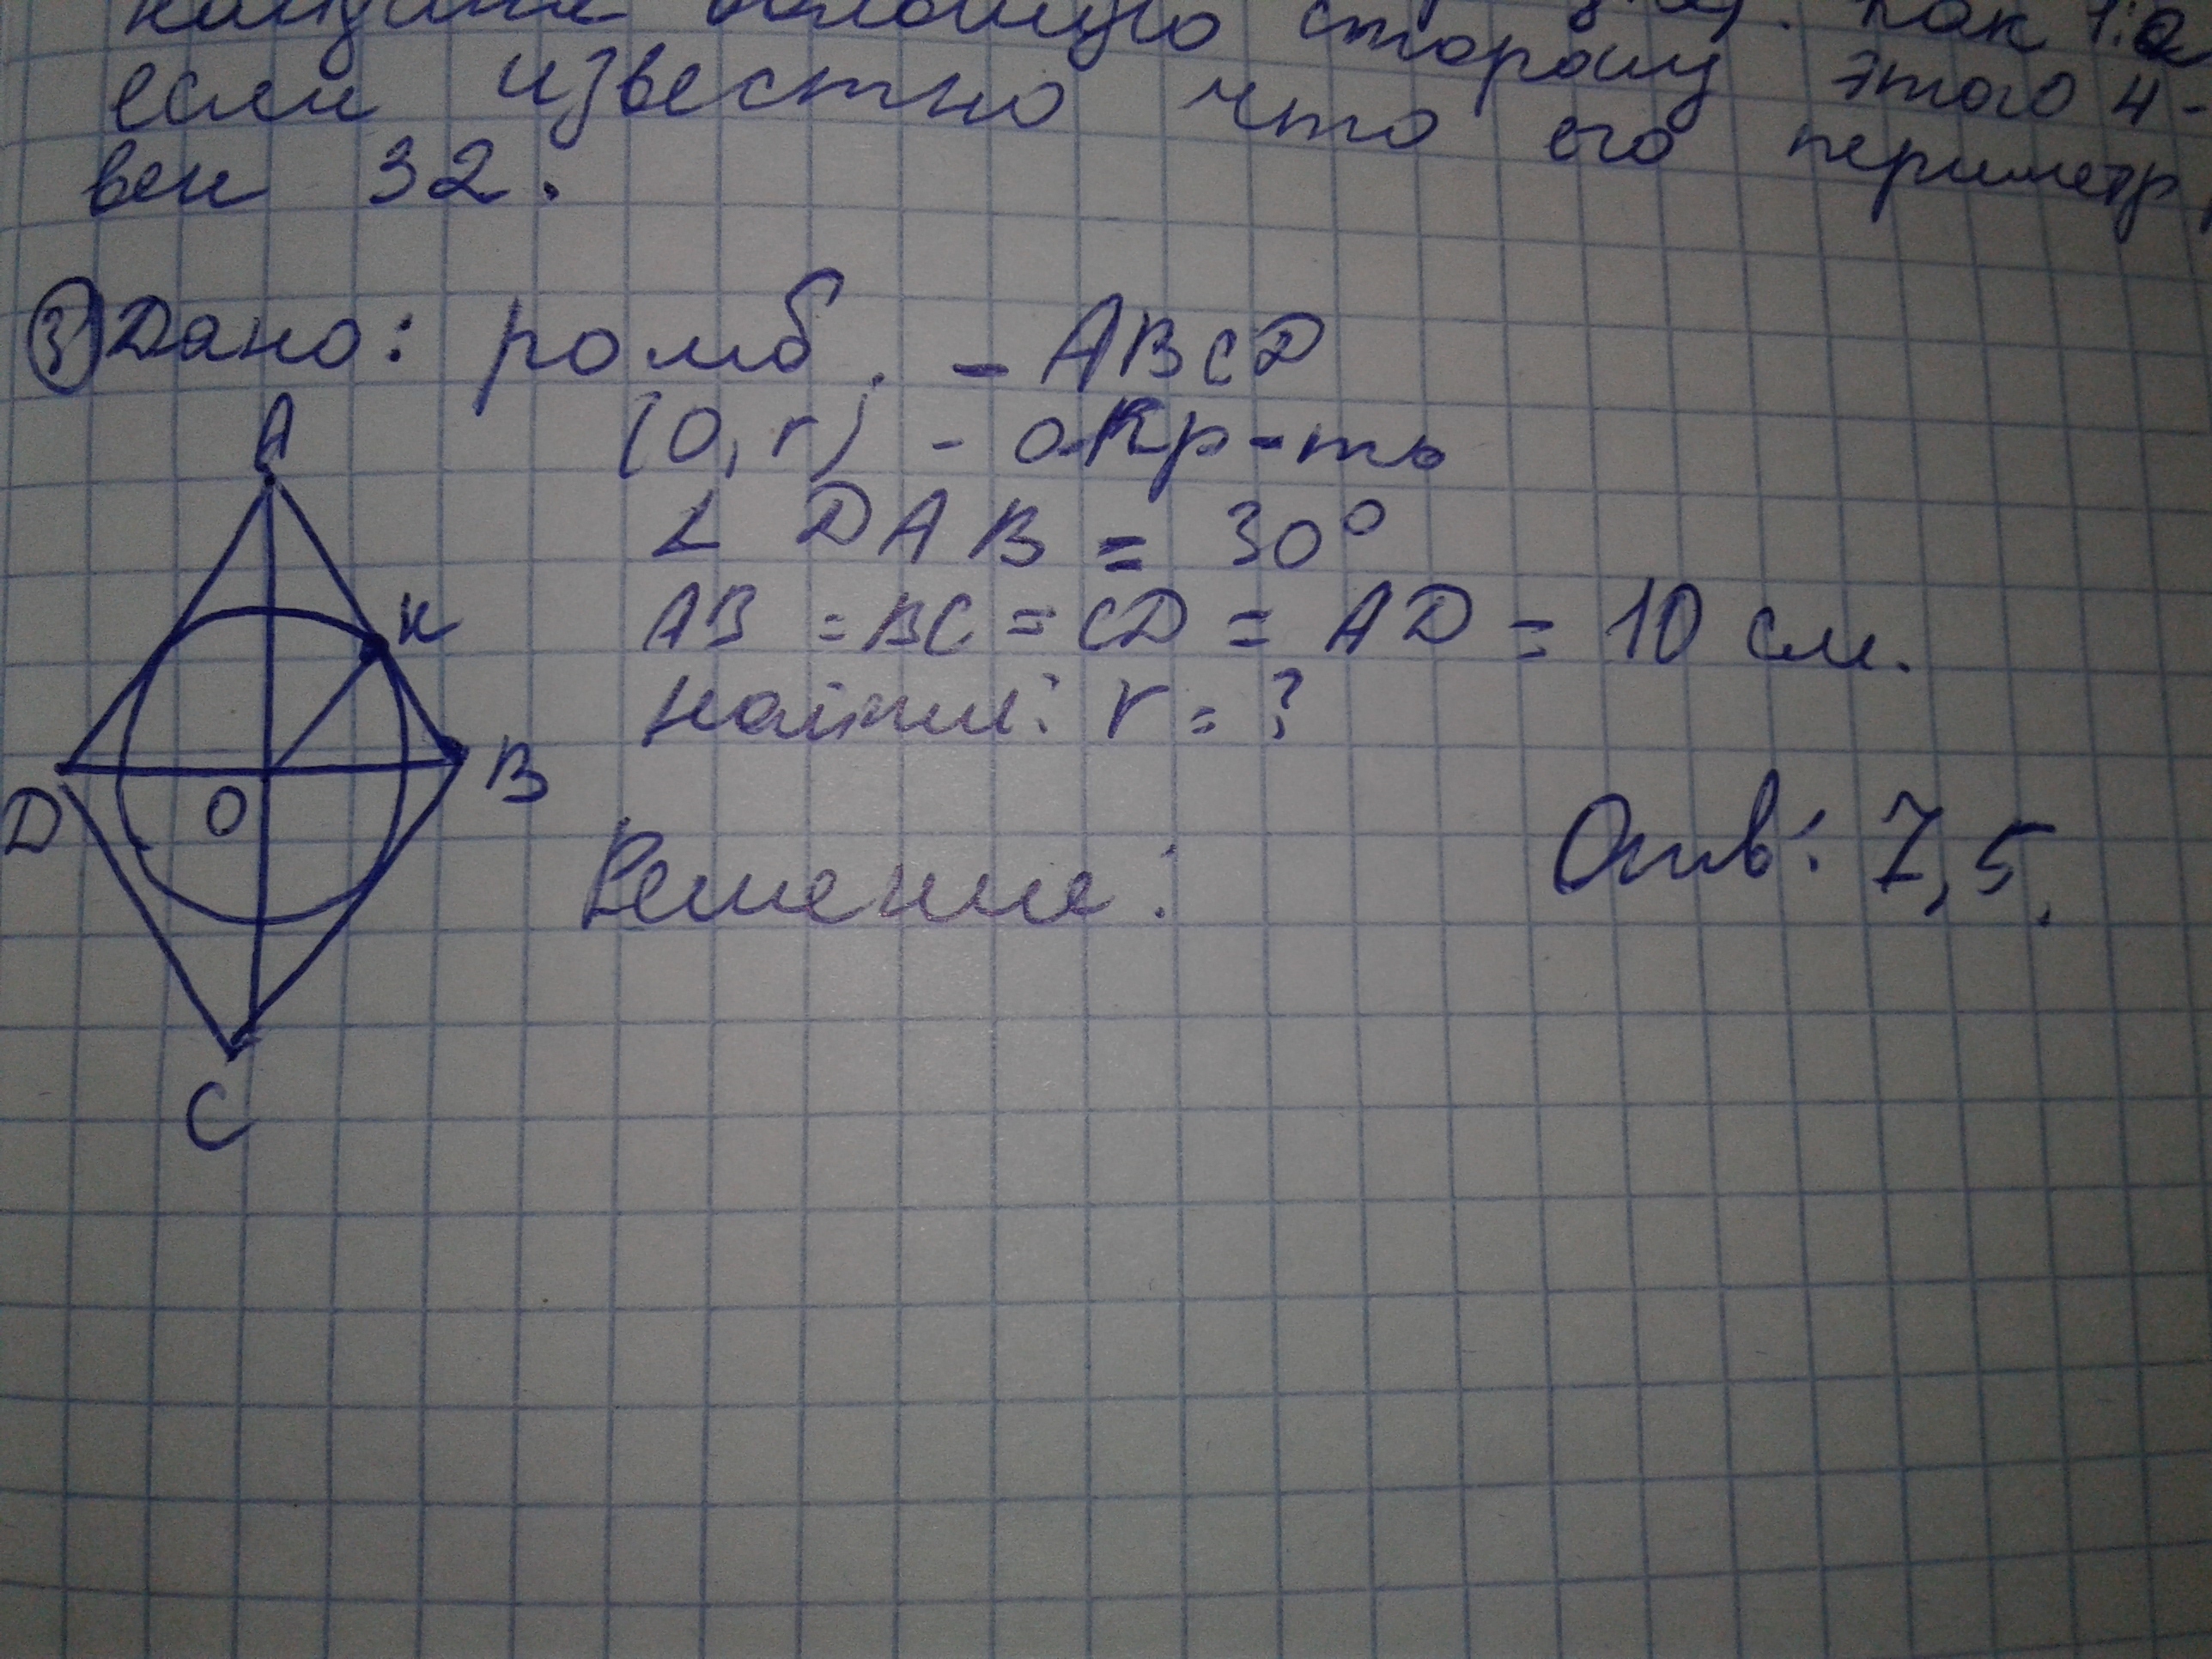 сторону этого 4-
как 1:2
если известно что его периметр
вен 32.
3 Дано: ромб. - ABCD
(O, r) - окр-ть
∠ DAB = 30°
AB = BC = CD = AD = 10 см.
Найти: r = ?
Решение: Отв: 7,5.
A
K
D
O
B
C